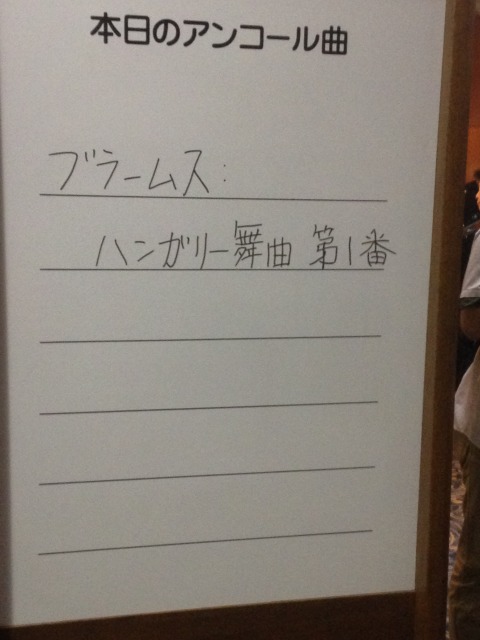 本日のアンコール曲
ブラームス:
ハンガリー舞曲 第1番